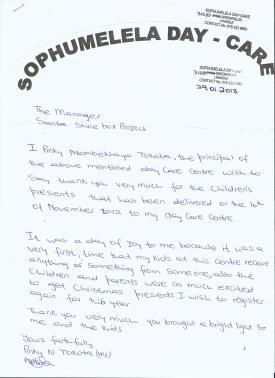 SOPHUMELELA DAY-CARE
SOPHUMELELA DAY-CARE
SOPHUMELELA DAY-CARE
29.01.2013
The Manager
Santa Shoe box Project
I Pinky Ntombekhaya Tokota, the principal of
the above mentioned day Care Centre wish to
Say thank you very much for the Children's
presents that has been delivered on the 16th
of November 2012 to my day Care Centre
It was a day of Joy to me because it was a
very first, time that my kids at this centre receive
anything or something from someone, also the
Children and parents were so much excited
to get Christmas presents I wish to register
again for this year
Thank you very much you brought a bright light to
me and the kids.
Yours faithfully
Pinky N. Tokota (Mrs)